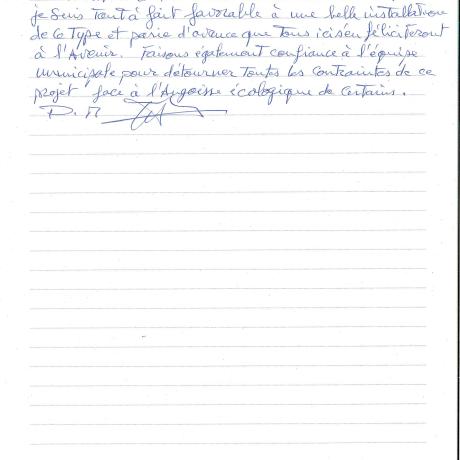 je suis tout à fait favorable à une belle installation
de ce type et parie d'avance que tous ici s'en féliciteront
à l'Avenir. Faisons également confiance à l'équipe
municipale pour détourner toutes les contraintes de ce
projet face à l'Angoisse écologique de certains.
D. M